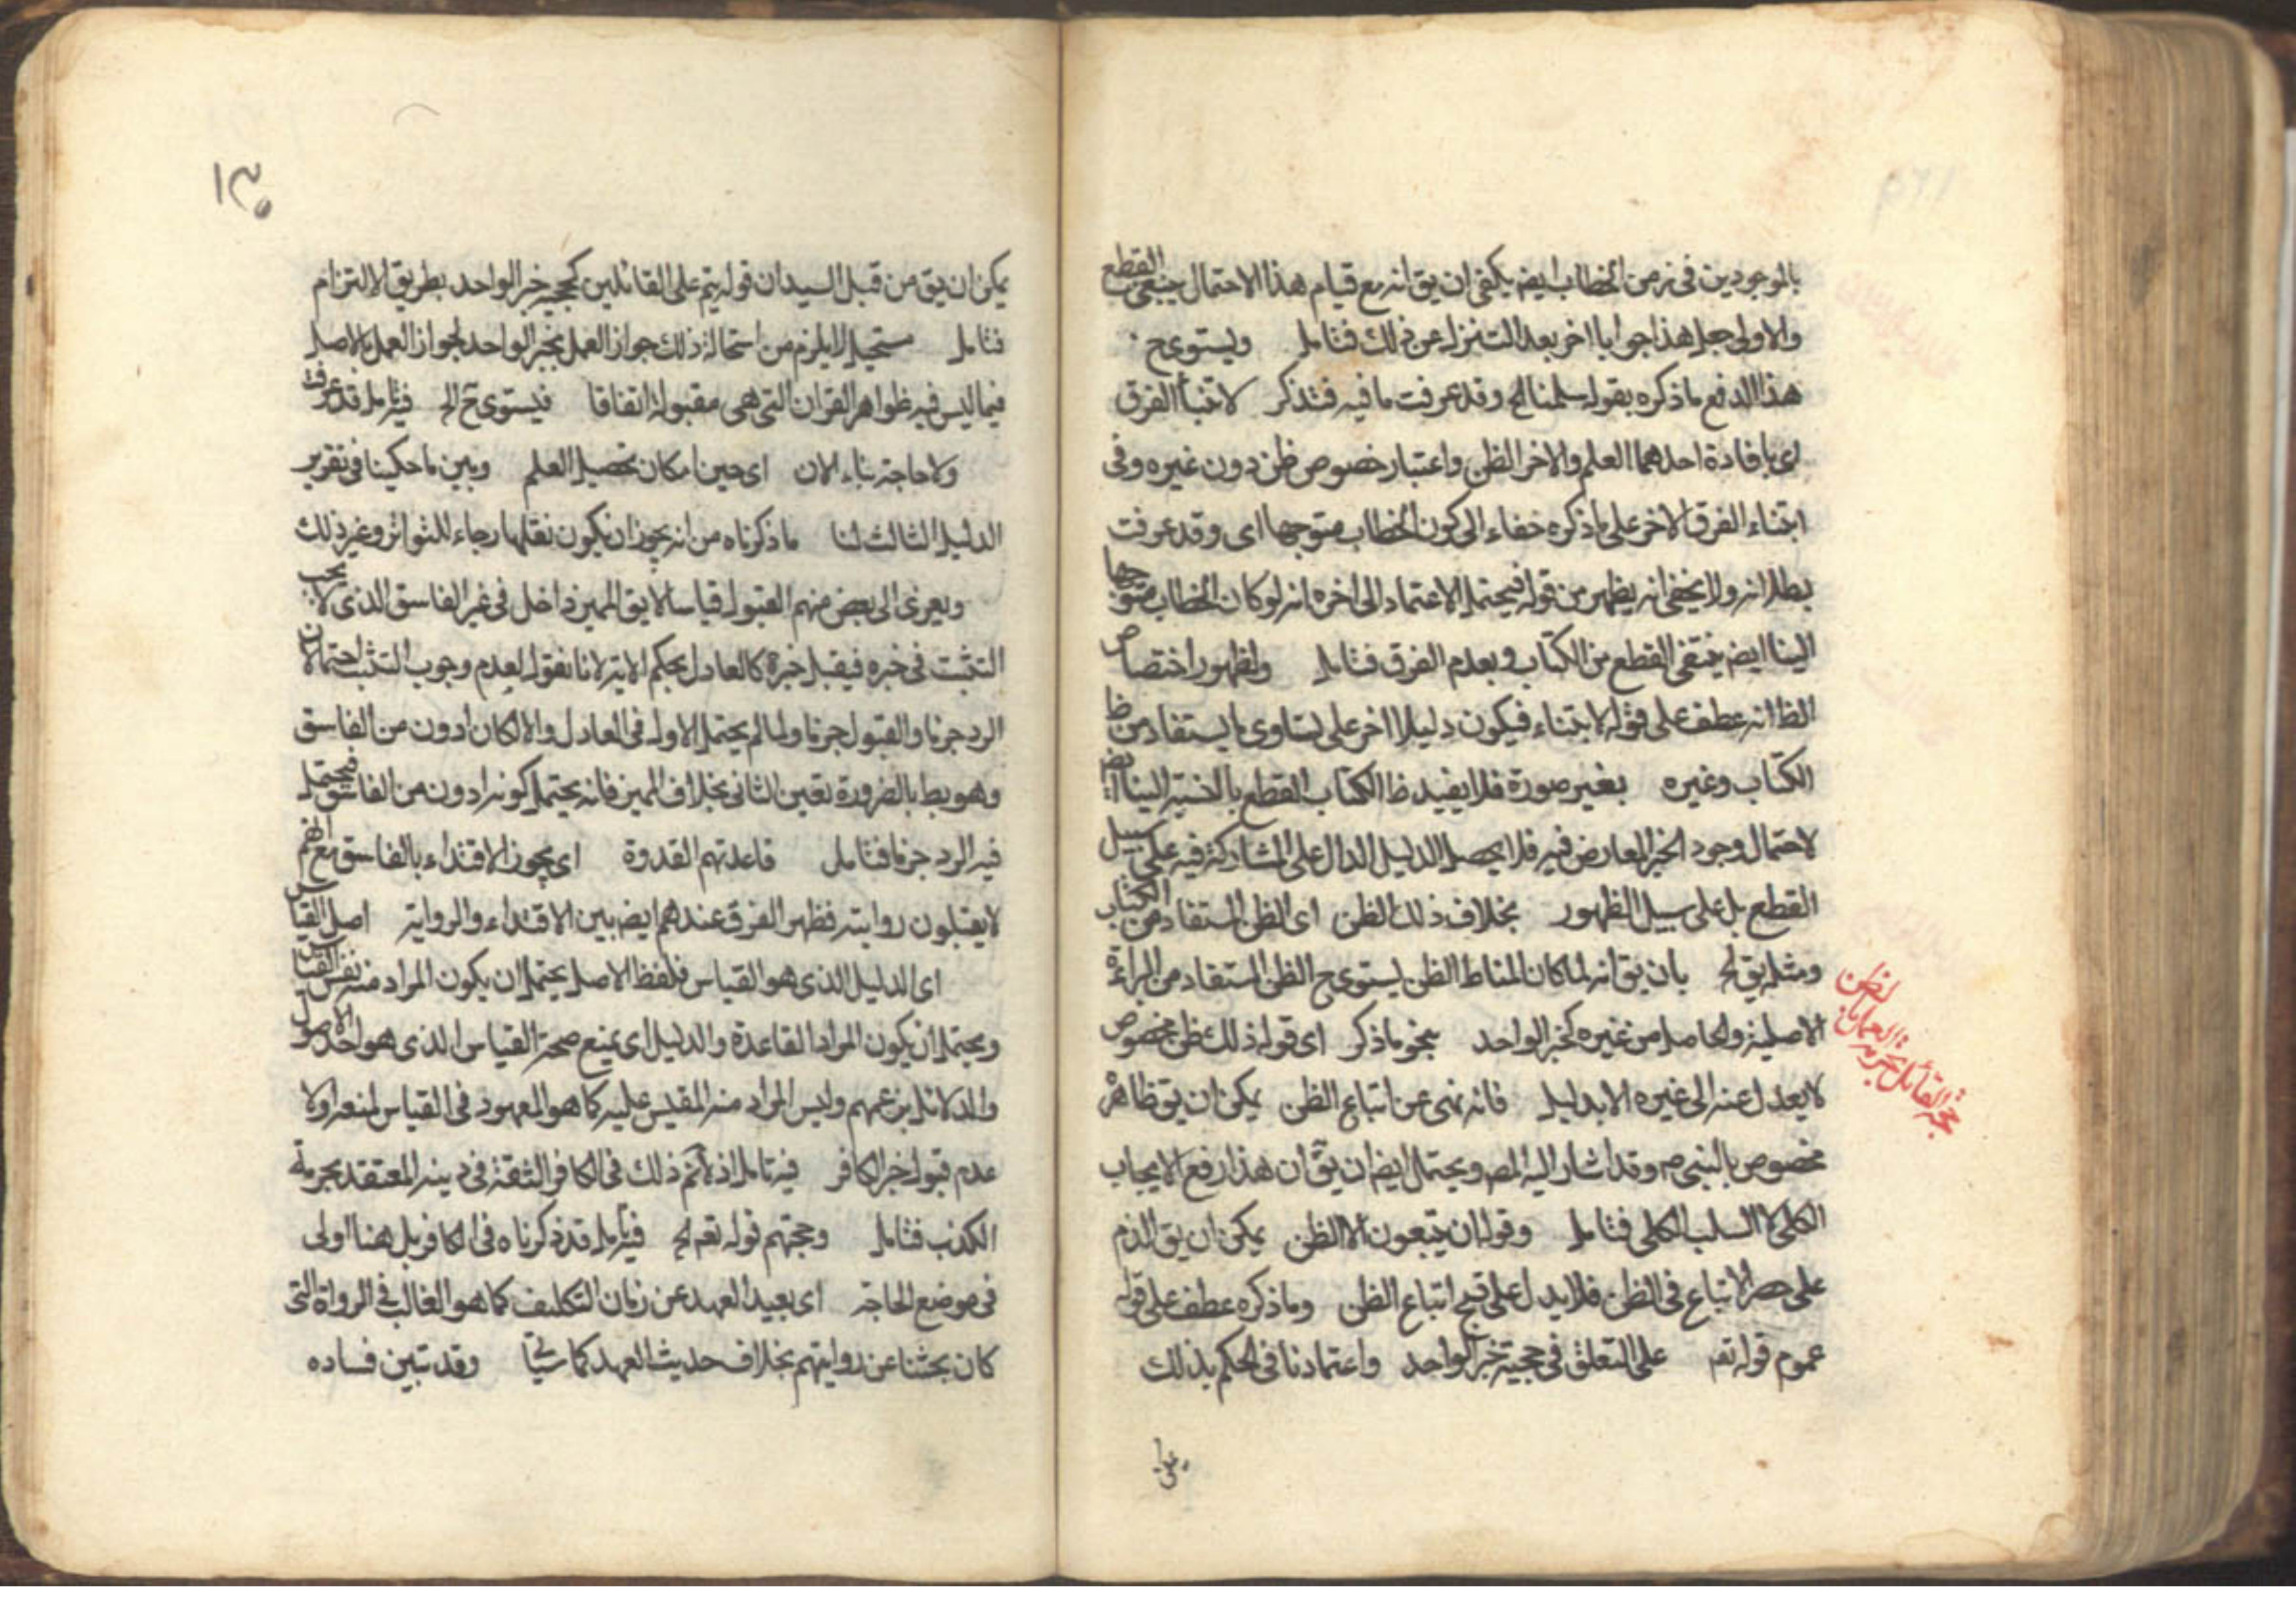 بالموجودين فى زمن الخطاب ايض يكفى ان يق انه مع قيام هذا الاحتمال ينتفى القطع
والاولى جعل هذا جوابا اخر بعد التنزل عن ذلك فتامل ويستوى ح
هذا الدفع ما ذكره بقوله سلمنا الخ وقد عرفت ما فيه فتذكر لابتناء الفرق
اى بافادة احدهما العلم والاخر الظن واعتبار خصوص ظن دون غيره وفى
ابتناء الفرق الاخر على ما ذكره خفاء الى كون الخطاب متوجها اى وقد عرفت
بطلانه ولا يخفى انه يظهر من قوله فيحتمل الاعتماد الى اخره انه لو كان الخطاب متوجها
الينا ايض ينتفى القطع من الكتاب وبعدم الفرق فتامل ولظهور اختصاص
الظ انه عطف على قوله لابتناء فيكون دليلا اخر على تساوى ما يستفاد من ظ
الكتاب وغيره بغير صورة فلا يفيد ظ الكتاب القطع بالنسبة الينا ايض
لاحتمال وجود الخبر المعارض فيه فلا يحصل الدليل الدال على المشاركة فيه على سبيل
القطع بل على سبيل الظهور بخلاف ذلك الظن اى الظن المستفاد من الكتاب
ومثله يق الخ بان يق انه لما كان المناط الظن يستوى ح الظن المستفاد من البراءة
الاصلية والحاصل من غيره كخبر الواحد بنحو ما ذكر اى قوله ذلك ظن مخصوص
لا يعدل عنه الى غيره الا بدليل فانه نهى عن اتباع الظن يمكن ان يق ظاهره
مخصوص بالنبى ص وقد اشار اليه المصـ ويحتمل ايض ان يق ان هذا رفع الايجاب
الكلى لا السلب الكلى فتامل وقوله ان يتبعون الا الظن يمكن ان يق الذم
على حصر الاتباع فى الظن فلا يدل على قبح اتباع الظن وما ذكره عطف على قوله
عموم قوله تعـ على التعلق فى حجية خبر الواحد واعتمادنا فى الحكم بذلك
على
حجة القائل بحرمة العمل بالظن
١٣٠
يمكن ان يق من قبل السيد ان قوله يتم على القائلين بحجية خبر الواحد بطريق الالتزام
فتامل مستحيل لا يلزم من استحالة ذلك جواز العمل بخبر الواحد لجواز العمل بالاصل
فيما ليس فيه ظواهر القران التى هى مقبولة اتفاقا فيستوى ح الخ فيه تامل قد عرفت
ولا حاجة بناء لان اى حين امكان تحصيل العلم وبين ما حكينا فى تقرير
الدليل الثالث لنا ما ذكرناه من انه يجوز ان يكون نقلها رجاء للتواتر وغير ذلك
ويعزى الى بعض منهم القبول قياسا لا يق المميز داخل فى غير الفاسق الذى لا يجب
التثبت فى خبره فيقبل خبره كالعادل بحكم الاية لانا نقول لعدم وجوب التثبت احتمالان
الرد جزما والقبول جزما ولما لم يحتمل الاول فى العادل والا لكان ادون من الفاسق
وهو بط بالضرورة تعين الثانى بخلاف المميز فانه يحتمل كونه ادون من الفاسق فيحتمل
فيه الرد جزما فتامل قاعدتهم القدوة اى يجوز الاقتداء بالفاسق مع انهم
لا يقبلون روايته فظهر الفرق عندهم ايض بين الاقتداء والرواية اصل القياس
اى الدليل الذى هو القياس فلفظ الاصل يحتمل ان يكون المراد منه نفس القياس
ويحتمل ان يكون المراد القاعدة والدليل اى يمنع صحة القياس الذى هو احد الاصول
والدلائل بزعمهم وليس المراد منه المقيس عليه كما هو المعهود فى القياس لمنعه اولا
عدم قبول خبر الكافر فيه تامل اذ لا تم ذلك فى الكافر الثقة فى دينه المعتقد بحرمة
الكذب فتامل وحجتهم قوله تعـ الخ فيه تامل قد ذكرناه فى الكافر بل هنا اولى
فى موضع الحاجة اى بعيد العهد عن زمان التكليف كما هو الغالب فى الرواة التى
كان بحثنا عن روايتهم بخلاف حديث العهد كما سيجئ وقد تبين فساده